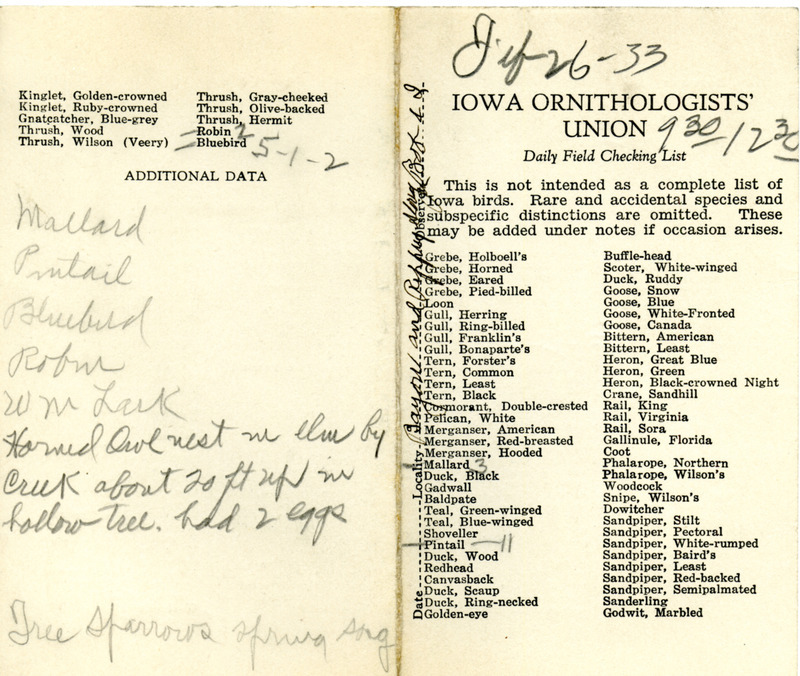 Kinglet, Golden-crowned
Kinglet, Ruby-crowned
Gnatcatcher, Blue-grey
Thrush, Wood
Thrush, Wilson (Veery)
Thrush, Gray-cheeked
Thrush, Olive-backed
Thrush, Hermit
Robin 2
Bluebird 5-1-2
ADDITIONAL DATA
Mallard
Pintail
Bluebird
Robin
W M Lark
Horned Owl nest in elm by
Creek about 20 ft up in
hollow tree. had 2 eggs
Tree Sparrows spring song
Feb-26-33
IOWA ORNITHOLOGISTS'
UNION 9 30 / 12 30
Daily Field Checking List
This is not intended as a complete list of
Iowa birds. Rare and accidental species and
subspecific distinctions are omitted. These
may be added under notes if occasion arises.
Date Locality and Observer
Grebe, Holboell's
Grebe, Horned
Grebe, Eared
Grebe, Pied-billed
Loon
Gull, Herring
Gull, Ring-billed
Gull, Franklin's
Gull, Bonaparte's
Tern, Forster's
Tern, Common
Tern, Least
Tern, Black
Cormorant, Double-crested
Pelican, White
Merganser, American
Merganser, Red-breasted
Merganser, Hooded
Mallard 3
Duck, Black
Gadwall
Baldpate
Teal, Green-winged
Teal, Blue-winged
Shoveller
Pintail - 11
Duck, Wood
Redhead
Canvasback
Duck, Scaup
Duck, Ring-necked
Golden-eye
Buffle-head
Scoter, White-winged
Duck, Ruddy
Goose, Snow
Goose, Blue
Goose, White-Fronted
Goose, Canada
Bittern, American
Bittern, Least
Heron, Great Blue
Heron, Green
Heron, Black-crowned Night
Crane, Sandhill
Rail, King
Rail, Virginia
Rail, Sora
Gallinule, Florida
Coot
Phalarope, Northern
Phalarope, Wilson's
Woodcock
Snipe, Wilson's
Dowitcher
Sandpiper, Stilt
Sandpiper, Pectoral
Sandpiper, White-rumped
Sandpiper, Baird's
Sandpiper, Least
Sandpiper, Red-backed
Sandpiper, Semipalmated
Sanderling
Godwit, Marbled